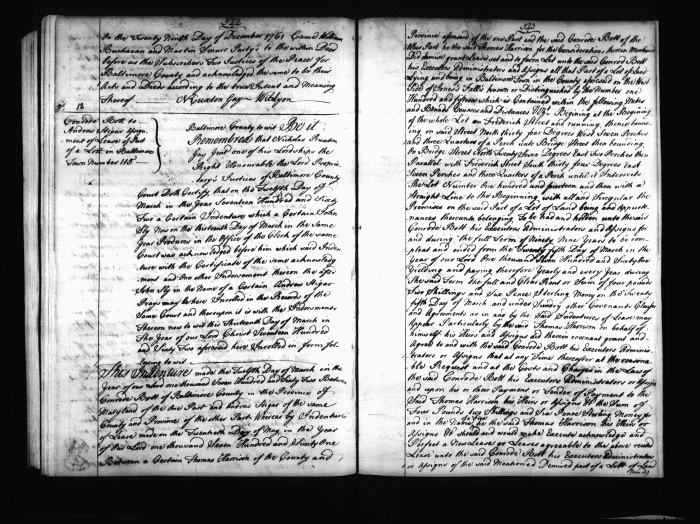 522
In the Twenty Ninth Day of December 1761 Came William
Buchanan and Martin Party's to the within Deed
before us the Subscribers Two Justices of the Peace for
Baltimore County and acknowledged the same to be their
Acts and Deeds according to the true Intent and Meaning
thereof N Ruxton Gay Wm Lyon
12
Conrode Bott to
Andrew Stigar Assign
ment of Lease of Part
of a Lott in Baltimore
Town Number 118
Baltimore County to wit Be it
Remembred that Nicholas Ruxton
Gay Gent one of his Lordships the
Right Honourable the Lord Proprie
tary's Justices of Baltimore County
Court Doth Certify that on the Twelfth Day of
March in the Year Seventeen Hundred and Sixty
Two a Certain Indenture which a Certain John
Sly Now on the thirteenth Day of March in the same
Year Produces in the Office of the Clerk of the same
Court was acknowledged before him which said Inden
ture with the Certificate of the same acknowledg
ment and One other Indorsement thereon the afs
John Sly in the Name of a Certain Andrew Stigar
Prays may be here Inrolled in the Records of the
Same Court and thereupon is with the Indorsments
Thereon now to wit this Thirteenth Day of March in
The Year of our Lord Christ Seventeen Hundred
and Sixty Two aforesaid here Inrolled in form fol
lowing to wit
This Indenture made the Twelfth Day of March in the
Year of our Lord one thousand Seven Hundred and Sixty Two Between
Conrode Bott of Baltimore County in the Province of
Maryland of the One Part and Andrew Stigar of the same
County and Province of the other Part Whereas by Indenture
of Lease made on the Twentieth Day of May in the Year
of the Lord one thousand Seven Hundred and Sixty One
Between a Certain Thomas Harrison of the County and
523
Province aforesaid of the one Part and the said Conrode Bott of the
other Part he the said Thomas Harrison for the Consideration therein Mentioned
Did demise grant Lease set and to farm Let unto the said Conrode Bott
his Executors Administrators and Assigns all that Part of a Lot of Land
Lying and being in Baltimore Town in the County aforesaid on the West
Side of Jones's Falls known or Distinguished by the Number one
Hundred and fifteen which is Contained within the following Metes
and Bounds Courses and Distances Viz Begining at the Begining
of the whole Lot on Frederick Street and running thence bound
ing on said Street North thirty four Degrees West Seven Perches
and three Quarters of a Perch unto Bridge Street then bounding
to Bridge Street North Twenty Seven Degrees East Two Perches then
Parallel with Frederick Street South thirty four Degrees East
Seven Perches and three Quarters of a Perch until it Intersects
the Lot Number One hundred and fourteen and then with a
Straight Line to the Beginning with all and Singular the
Premises in the said Part of a Lot of Land being and Appurte
nances thereunto belonging To be had and holden unto the said
Conrode Bott his Executors administrators and Assigns for
and during the full Term of Ninety Nine Years to be com
pleat and ended from the Twenty fifth Day of March in the
Year of our Lord One thousand Seven Hundred and Sixty One
Yielding and paying therefore Yearly and every Year during
The said Term the full and Clear Rent or Sum of four pounds
Two Shillings and Six Pence Sterling Money on the Twenty
fifth Day of March and under Sundry other Covenants Clauses
and Agreements as in and by the said Indenture of Lease may
Appear Particularly by the said Thomas Harrison on behalf of
himself his Heirs and Assigns did therein covenant grant and
Agree to and with the said Conrode Bott his Executors Adminis
trators or Assigns that at any Time thereafter at the reasona
ble Request and at the Costs and Charges in the Law of
the said Conrode Bott his Executors Administrators or Assigns
and upon his or their Payment or Tender of Payment to the
Said Thomas Harrison his Heirs or Assigns of the Sum of
Four Pounds Two Shillings and Six Pence Sterling Money for
and in the Name he the said Thomas Harrison his Heirs or
Assigns should and would make Execute acknowledge and
Perfect a New Lease or Leases agreeable to the above recited
Lease unto the said Conrode Bott his Executors administrators
or Assigns of the said Mentioned Demised part of a Lott of Land